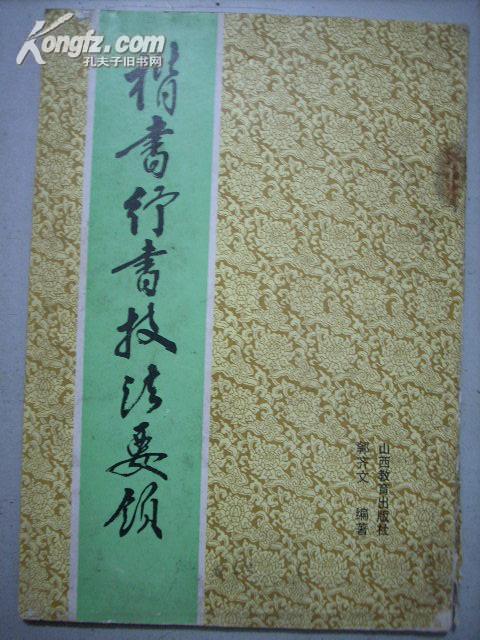 Kongfz.com
孔夫子旧书网
楷书行书技法要领
山西教育出版社
郭齐文 编著